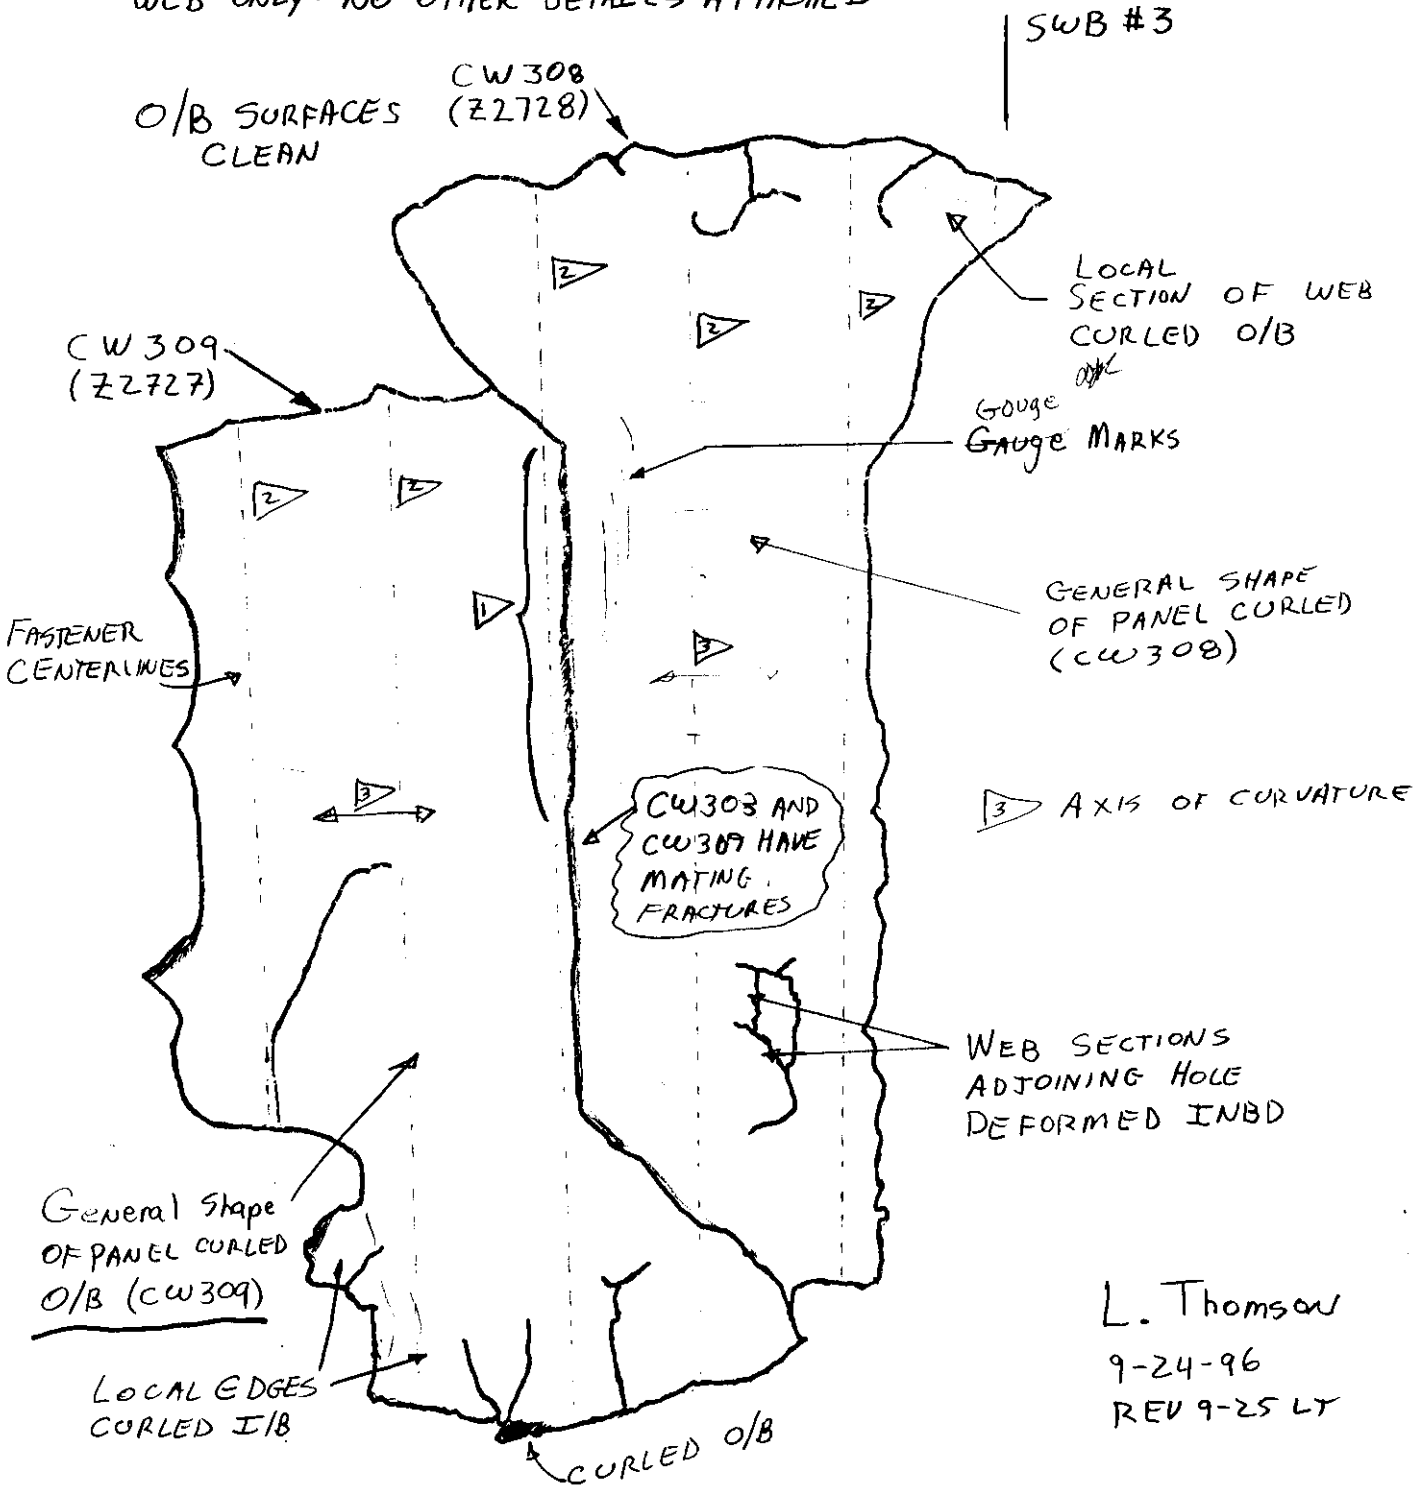 WEB ONLY - NO OTHER DETAILS ATTACHED
SWB #3
CW308
(Z2728)
O/B SURFACES
CLEAN
LOCAL
SECTION OF WEB
CURLED O/B
CW309
(Z2727)
Gouge
Gauge MARKS
2
2
2
2
2
1
GENERAL SHAPE
OF PANEL CURLED
(CW308)
FASTENER
CENTERLINES
3
3
3 AXIS OF CURVATURE
CW303 AND
CW309 HAVE
MATING
FRACTURES
WEB SECTIONS
ADJOINING HOLE
DEFORMED INBD
General Shape
OF PANEL CURLED
O/B (CW309)
LOCAL EDGES
CURLED I/B
CURLED O/B
L. Thomson
9-24-96
REV 9-25 LT